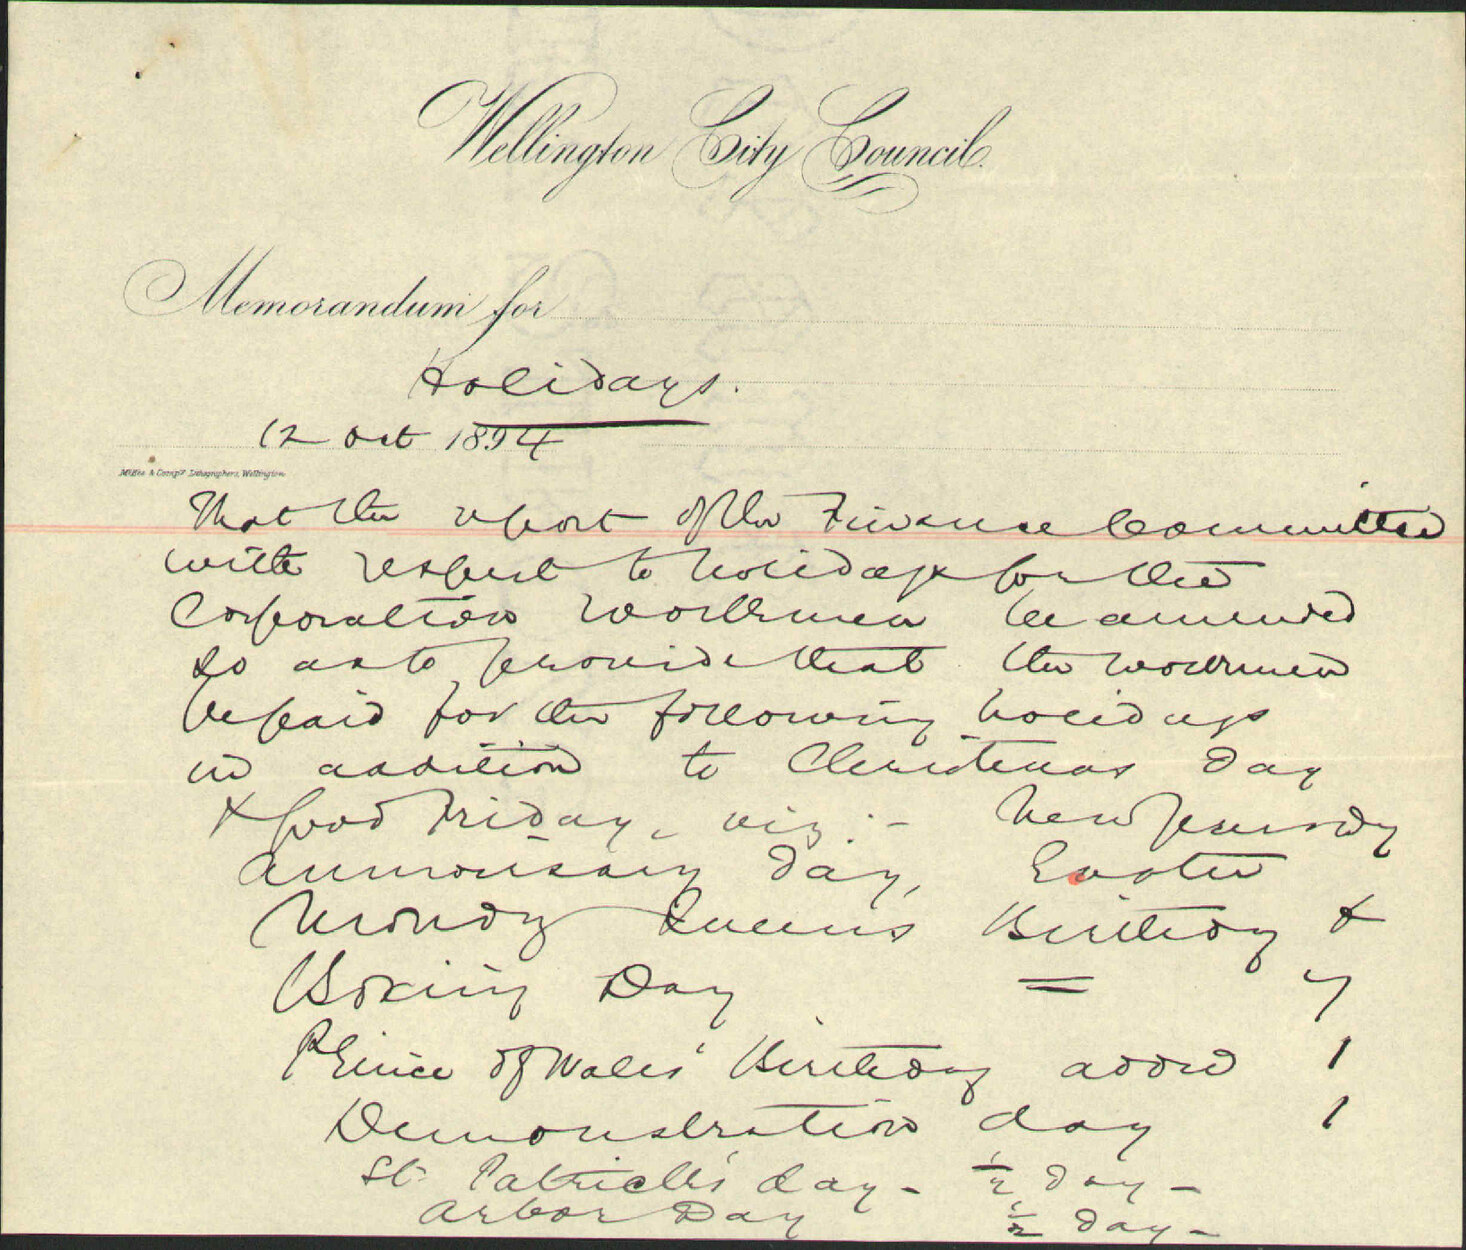 Wellington City Council.
Memorandum for
Holidays.
12 Oct 1894
McKee & Compy. Lithographers, Wellington
That the report of the Finance Committee
with respect to holidays for the
Corporation Workmen be amended
so as to provide that the workmen
be paid for the following holidays
in addition to Christmas day
& Good Friday, viz:- New Years dy
Anniversary day, Easter
Mondy Queens Birthday &
Boxing Day = 7
Prince of Wales' Birthday added 1
Demonstration day 1
St. Patrick's day - ½ day -
Arbor Day ½ day -